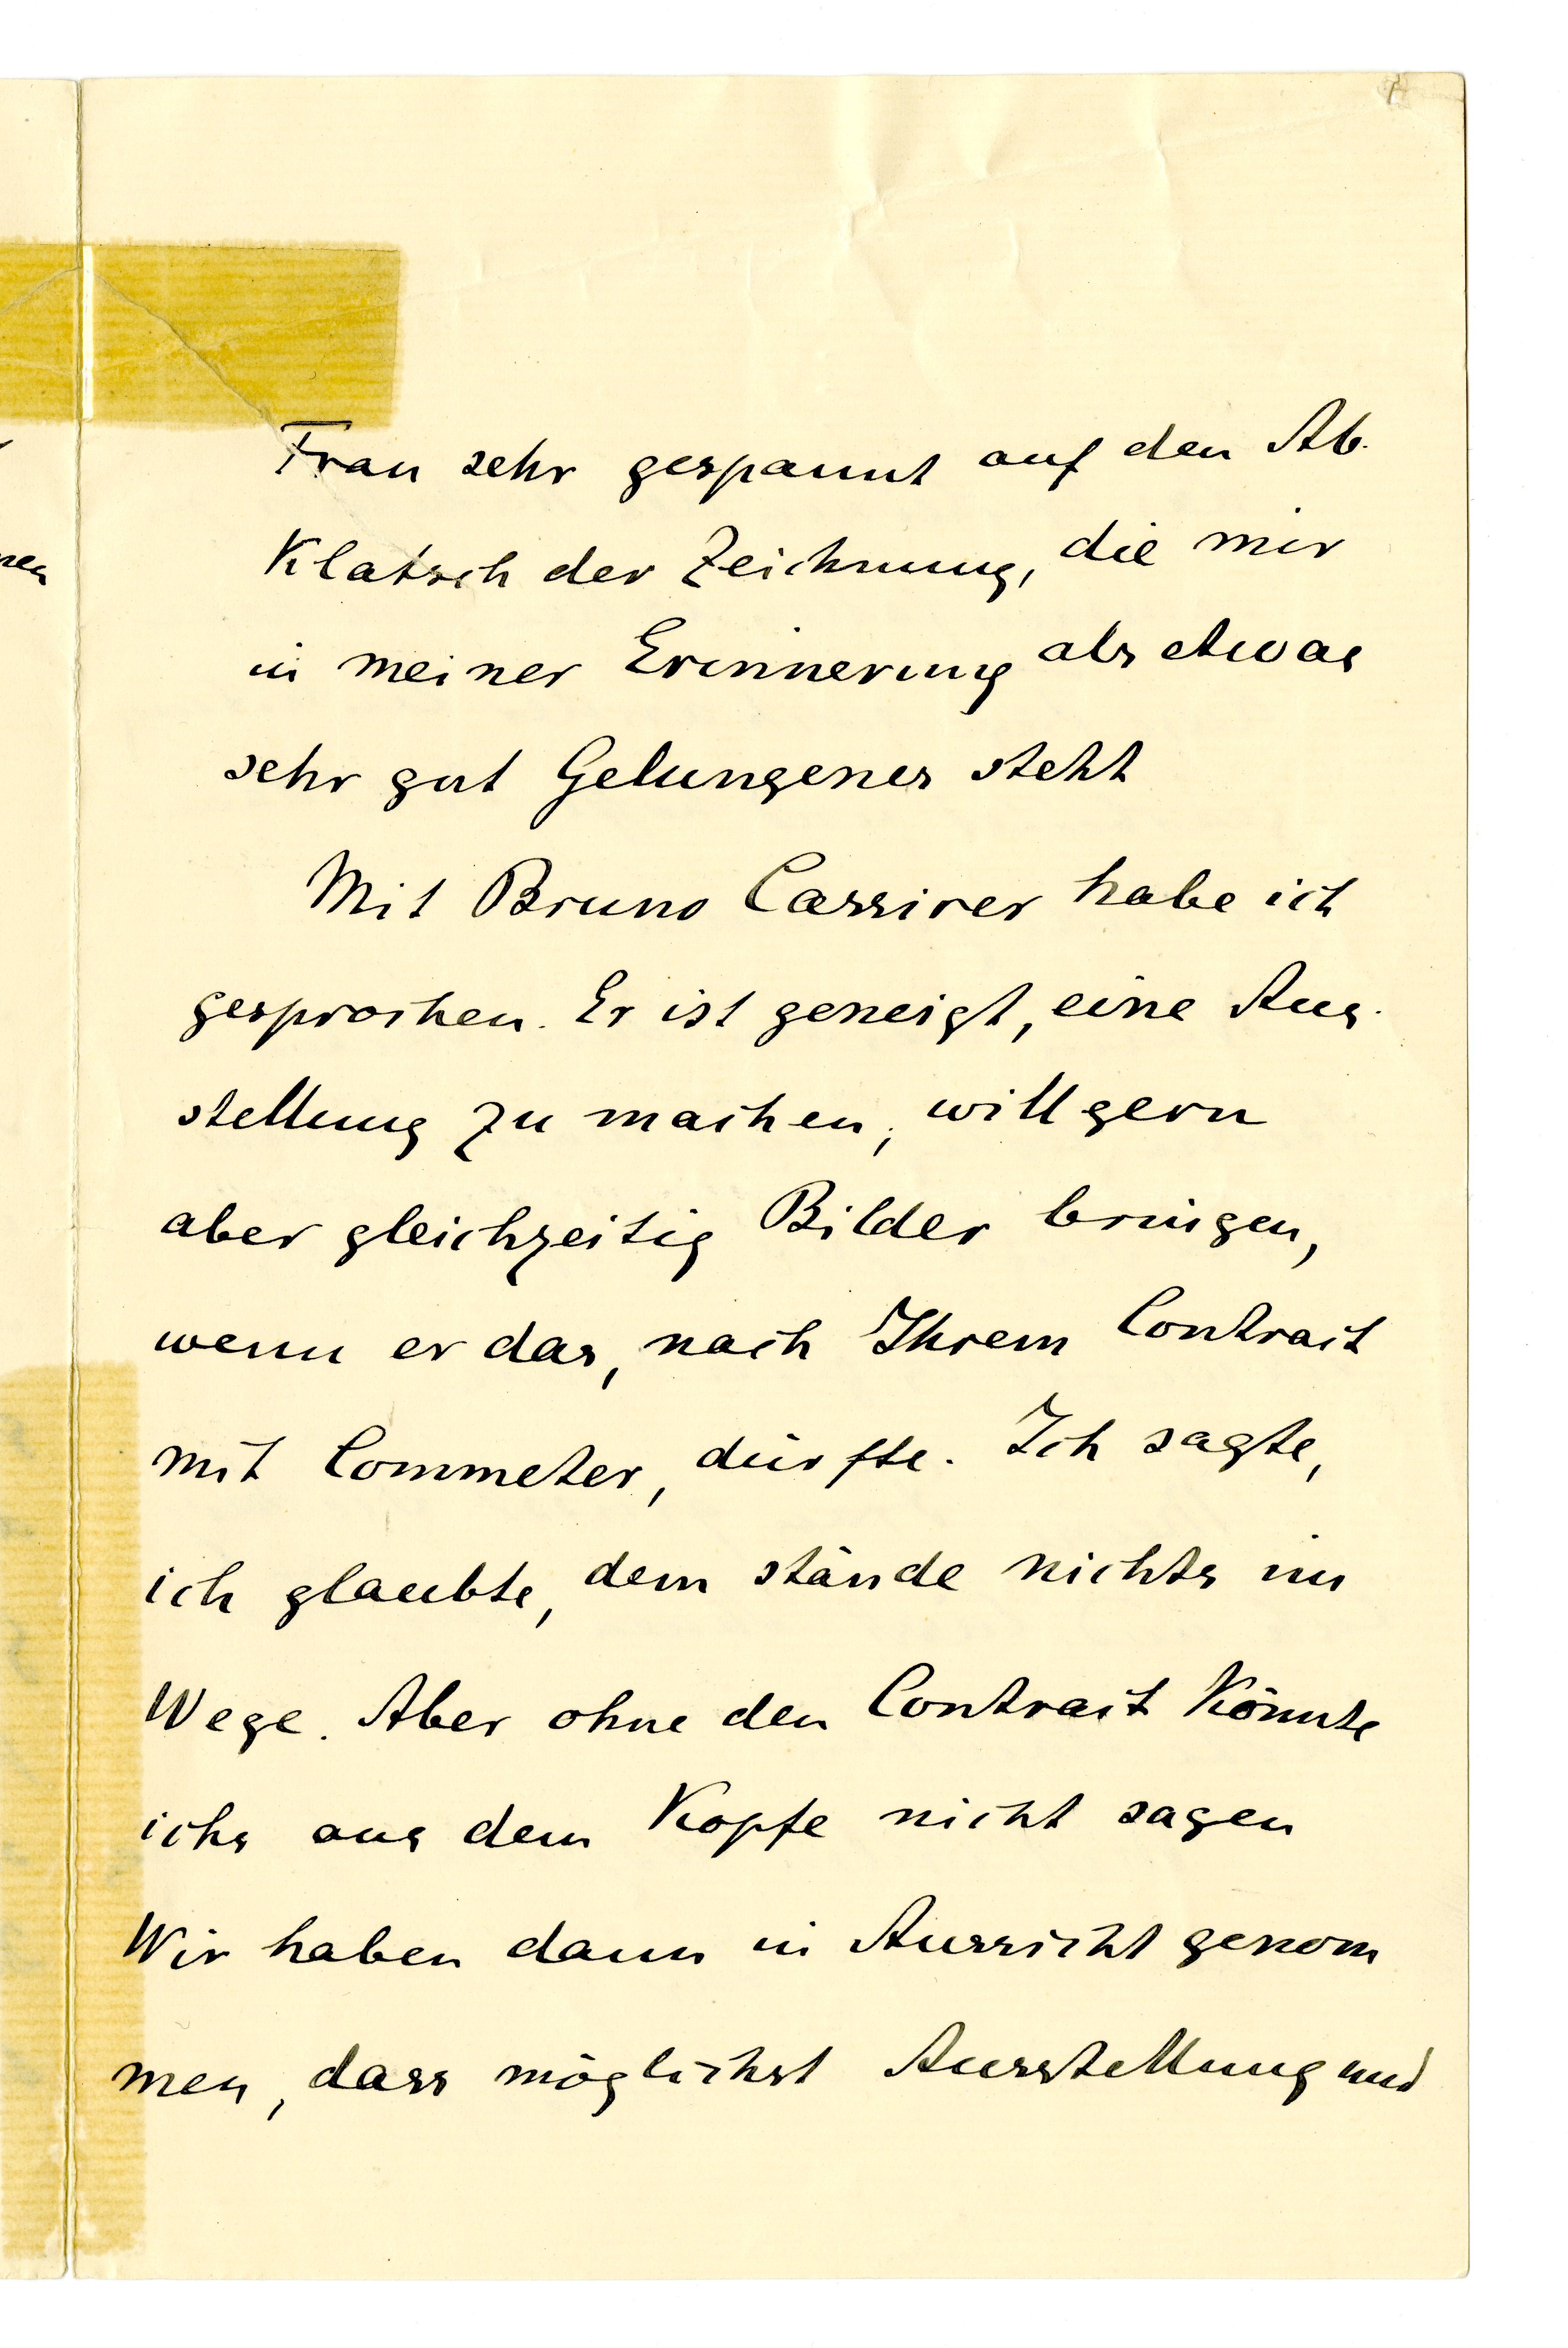 Frau sehr gespannt auf den Ab-
Klatsch der Zeichnung, die mir
in meiner Erinnerung als etwas
sehr gut Gelungenes steht
Mit Bruno Cassirer habe ich
gesprochen. Er ist geneigt, eine Aus-
stellung zu machen, will gern
aber gleichzeitig Bilder bringen,
wenn er das, nach Ihrem Contract
mit Commeter, dürfte. Ich sagte,
ich glaubte, dem stände nichts im
Wege. Aber ohne den Contract Könnte
ichs aus dem Kopfe nicht sagen
Wir haben dann in Aussicht genom
men, dass möglichst Ausstellung und